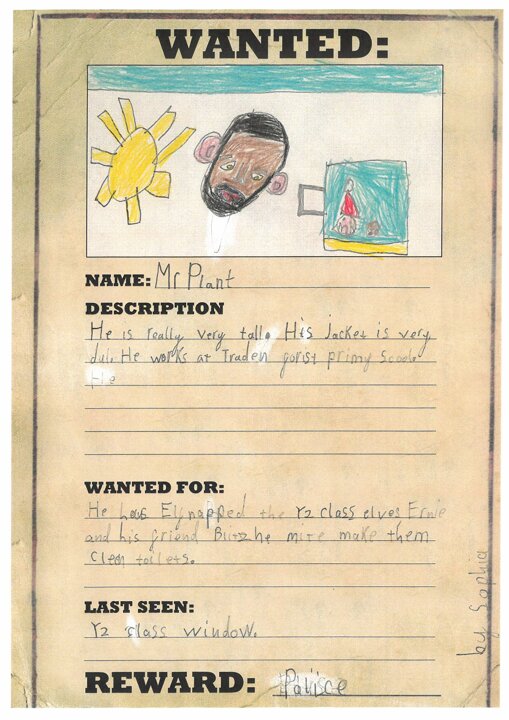 WANTED:
NAME: Mr Plant
DESCRIPTION
He is really very tall. His Jacket is very
dul. He works at Traden gorist primy Scoole.
He
WANTED FOR:
He has Elfnapped the Y2 class elves Ernie
and his friend Blitz he mite make them
clean toilets.
LAST SEEN:
Y2 class window.
REWARD: Palisce
by Sophia